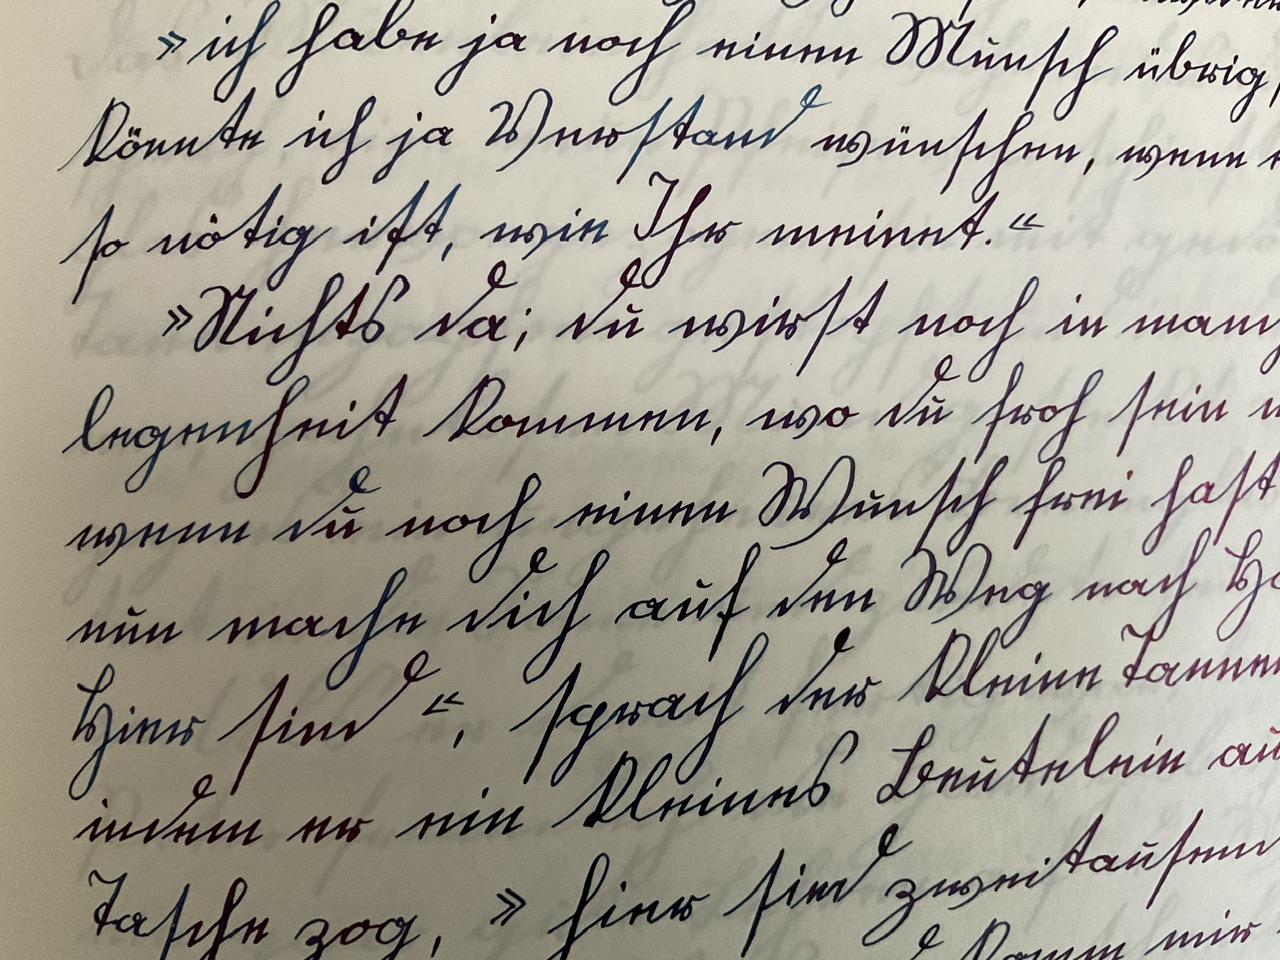 »ich habe ja noch einen Wunsch übrig,
könnte ich ja Verstand wünschen, wenn e
so nötig ist, wie Ihr meinet.“
»Nichts da; du wirst noch in manc
legenheit kommen, wo du froh sein w
wenn du noch einen Wunsch frei hast
nun mache dich auf den Weg nach Ha
Hier sind“, sprach der kleine Tannen
indem er ein kleines Beutelein au
Tasche zog, »hier sind zweitausend
komm mir